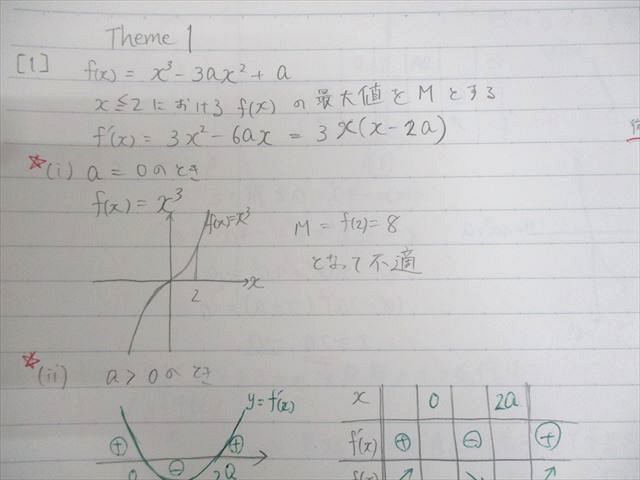 Theme 1
[1]
f(x) = x³ - 3ax² + a
x ≦ 2 における f(x) の最大値を M とする
f'(x) = 3x² - 6ax = 3x(x - 2a)
☆(i) a = 0 のとき
f(x) = x³
f(x)=x³
M = f(2) = 8
となって不適
x
2
☆(ii) a > 0 のとき
y = f'(x)
⊕ ⊖ ⊕
0 2a
x 0 2a
f'(x) ⊕ ⊖ ⊕
f(x) ↗ ↘ ↗